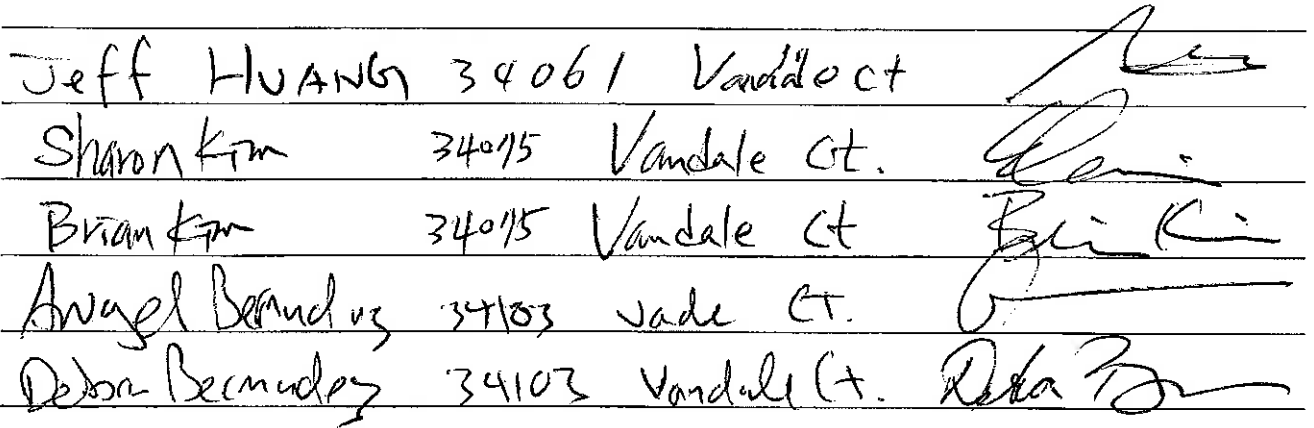 Jeff HUANG 34061 Vandale ct
Sharon Kim 34075 Vandale Ct.
Brian Kim 34075 Vandale Ct Brian Kim
Angel Bermudez 34103 Vade Ct.
Debra Bermudez 34103 Vandale Ct.